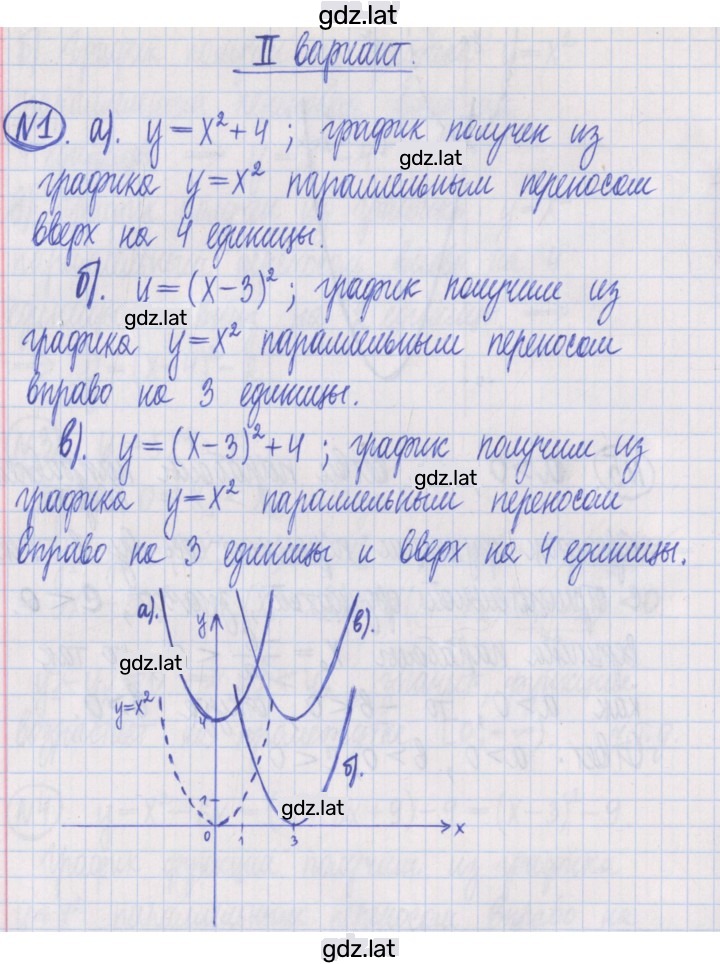 gdz.lat
II вариант.
№1. а). y = x² + 4 ; график получен из
gdz.lat
графика y = x² параллельным переносом
вверх на 4 единицы.
б). y = (x - 3)² ; график получим из
gdz.lat
графика y = x² параллельным переносом
вправо на 3 единицы.
в). y = (x - 3)² + 4 ; график получим из
gdz.lat
графика y = x² параллельным переносом
вправо на 3 единицы и вверх на 4 единицы.
а). y в).
gdz.lat
y = x² 4
б).
1 gdz.lat
0 1 3 x
gdz.lat